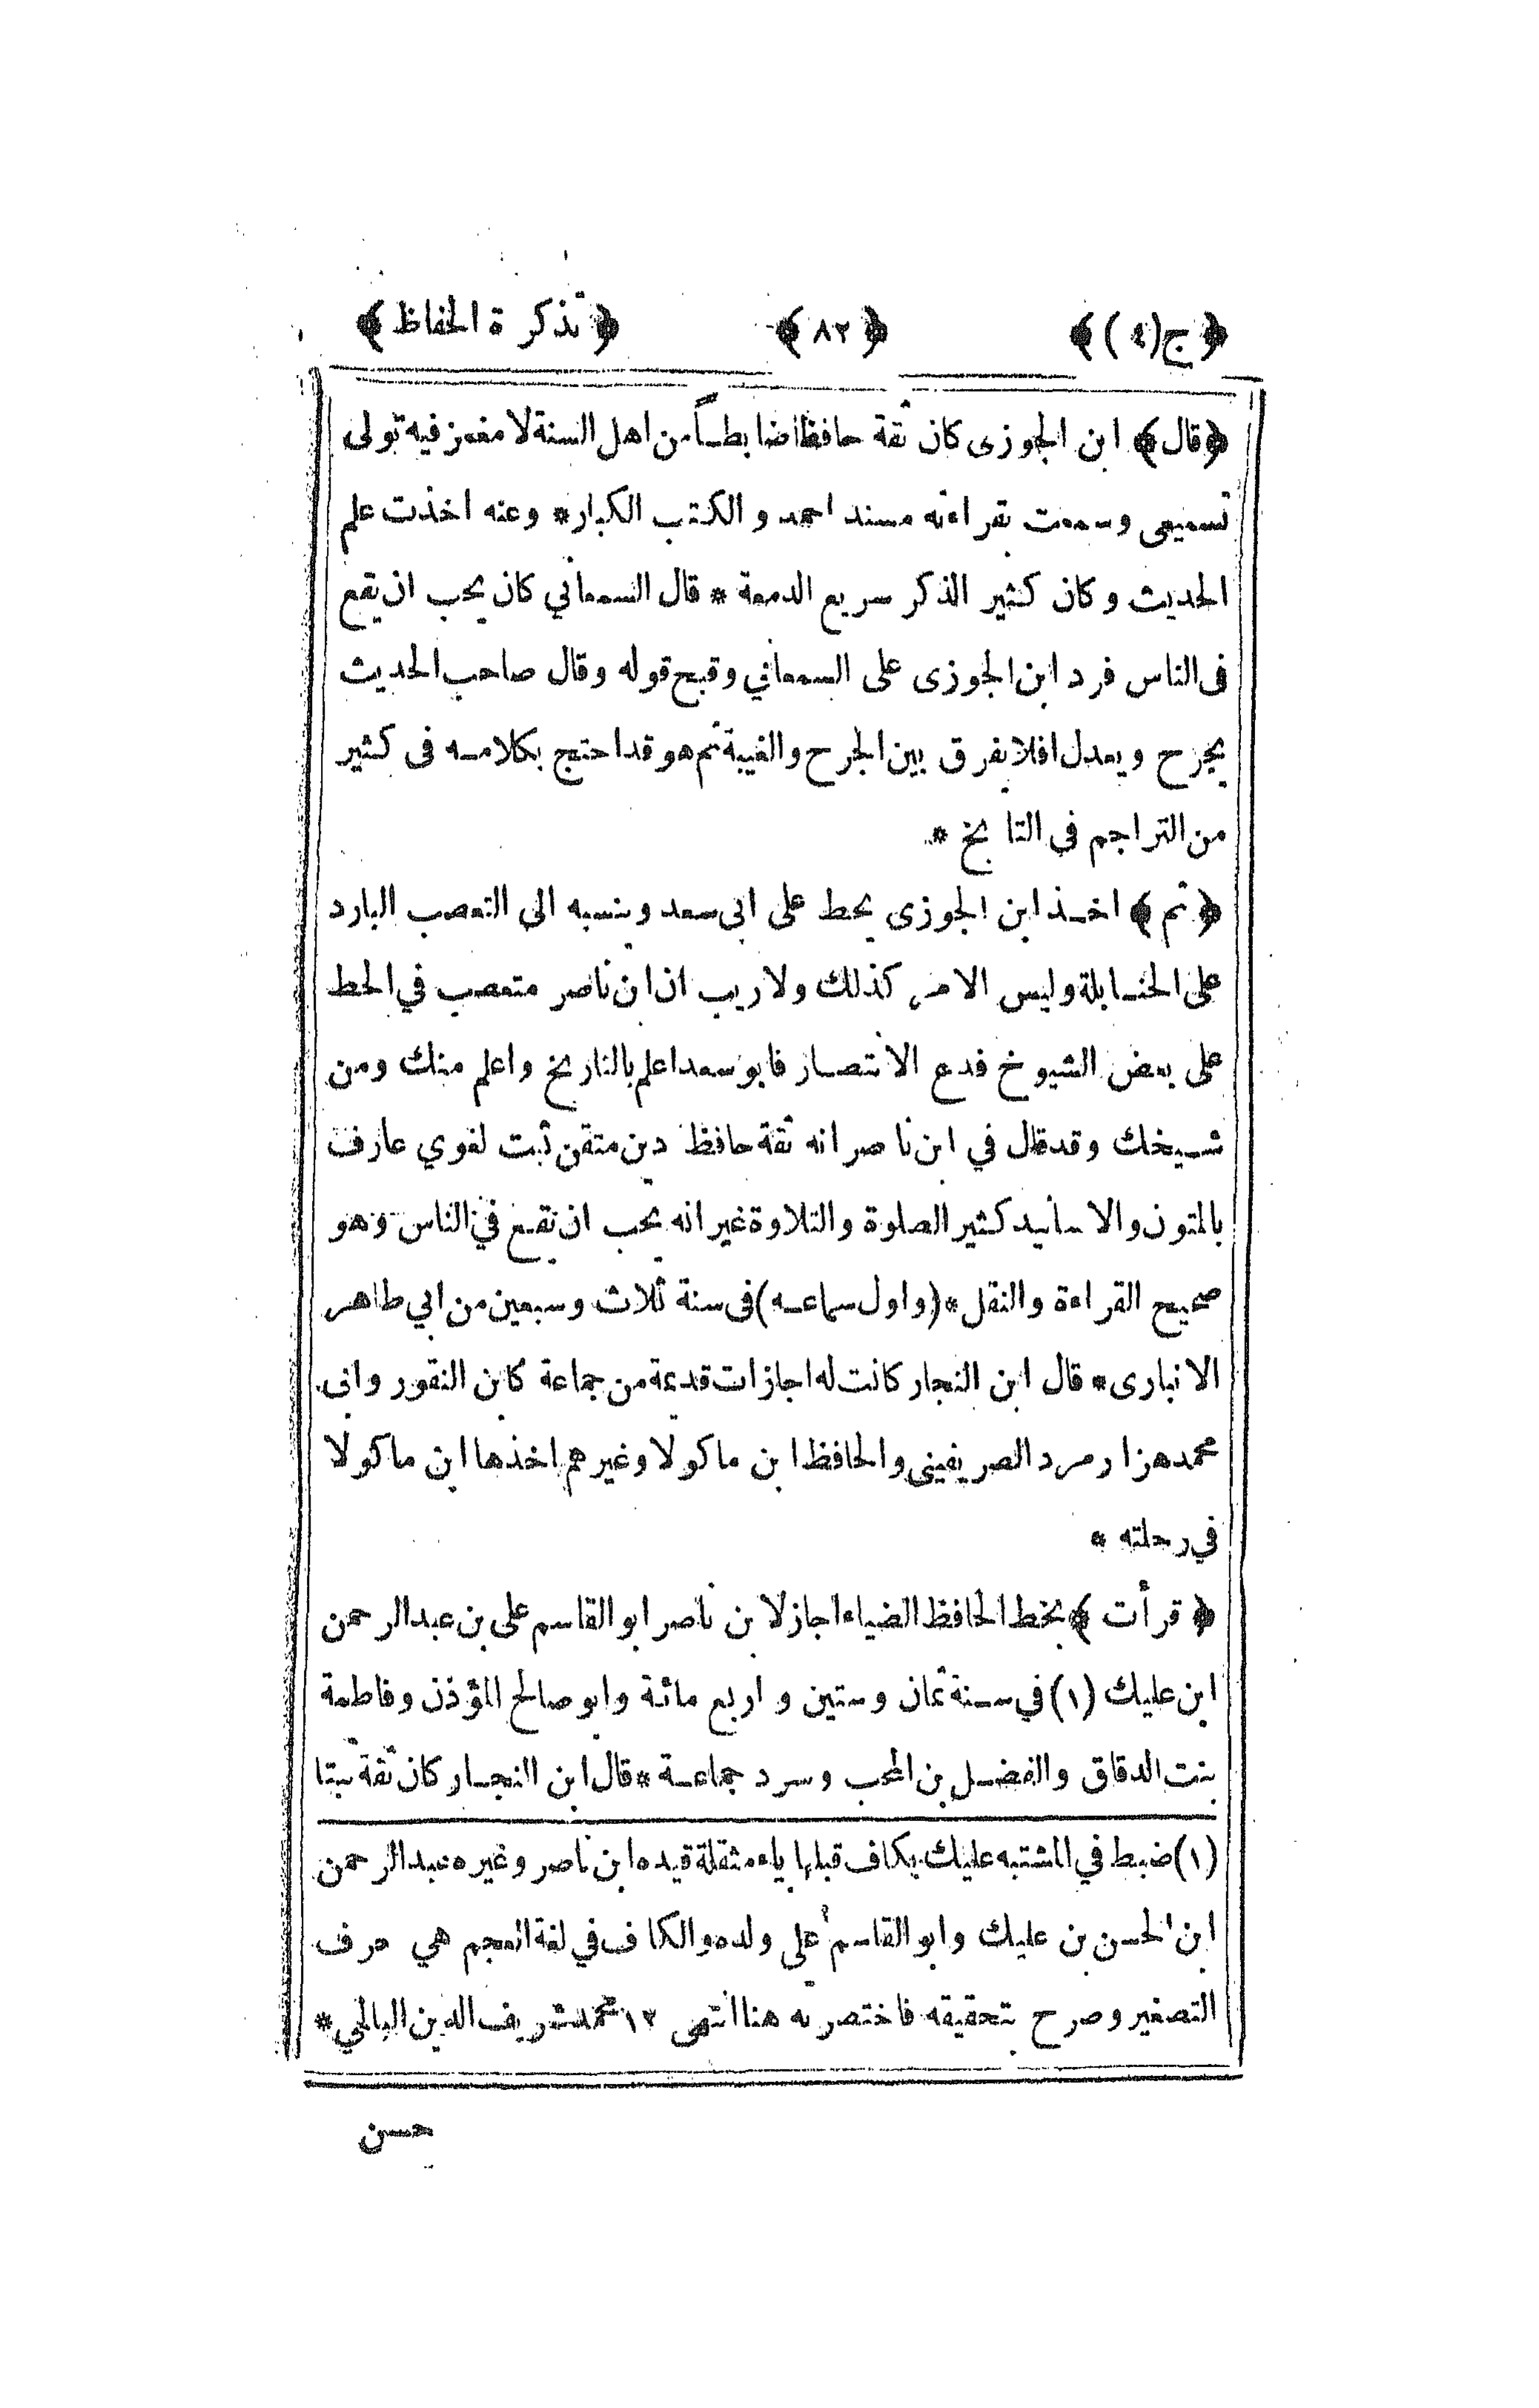 ﴿ ج (٤) ﴾ ﴿ ٨٢ ﴾ ﴿ تذكرة الحفاظ ﴾
﴿ قال ﴾ ابن الجوزى كان ثقة حافظا ضابطاً من اهل السنة لا مغمز فيه تولى
تسميعى وسمعت بقراءته مسند احمد والكتب الكبار * وعنه اخذت علم
الحديث وكان كثير الذكر سريع الدمعة * قال السمعاني كان يحب ان يقع
فى الناس فرد ابن الجوزى على السمعاني وقبح قوله وقال صاحب الحديث
يجرح ويعدل افلا يفرق بين الجرح والغيبة ثم هو قد احتج بكلامه فى كثير
من التراجم في التايخ *
﴿ ثم ﴾ اخذ ابن الجوزى يحط على ابى سعد وينسبه الى التعصب البارد
على الحنابلة وليس الامر كذلك ولا ريب ان ابن ناصر متعصب في الحط
على بعض الشيوخ فدع الانتصار فابو سعد اعلم بالتاريخ واعلم منك ومن
شيخك وقد قال في ابن ناصر انه ثقة حافظ دين متقن ثبت لغوي عارف
بالمتون والاسانيد كثير الصلوة والتلاوة غير انه يحب ان يقع في الناس وهو
صحيح القراءة والنقل * (واول سماعه) فى سنة ثلاث وسبعين من ابي طاهر
الانبارى * قال ابن النجار كانت له اجازات قديمة من جماعة كابن النقور وابى
محمد هزارمرد الصريفينى والحافظ ابن ماكولا وغيرهم اخذها ابن ماكولا
في رحلته *
﴿ قرأت ﴾ بخط الحافظ الضياء اجاز لابن ناصر ابو القاسم على بن عبد الرحمن
ابن عليك (١) في سنة ثمان وستين واربع مائة وابو صالح المؤذن وفاطمة
بنت الدقاق والفضل بن المحب وسرد جماعة * قال ابن النجار كان ثقة ثبتا
(١) ضبط في المشتبه عليك بكاف قبلها ياء مثقلة قيده ابن ناصر وغيره عبد الرحمن
ابن الحسن بن عليك وابو القاسم على ولده والكاف في لغة العجم هي حرف
التصغير وصرح بتحقيقه فاختصر به هنا انتهى ١٢ محمد شريف الدين
حسن